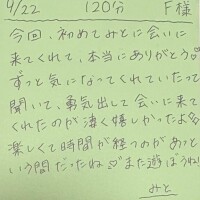 4/22 120分 F様
今回、初めてみとに会いに
来てくれて、本当にありがとう♡
ずっと気になってくれていたって
聞いて、勇気出して会いに来て
くれたのが凄く嬉しかったよ
楽しくて時間が経つのがあっと
いう間だったね♡また遊ぼうね!
みと